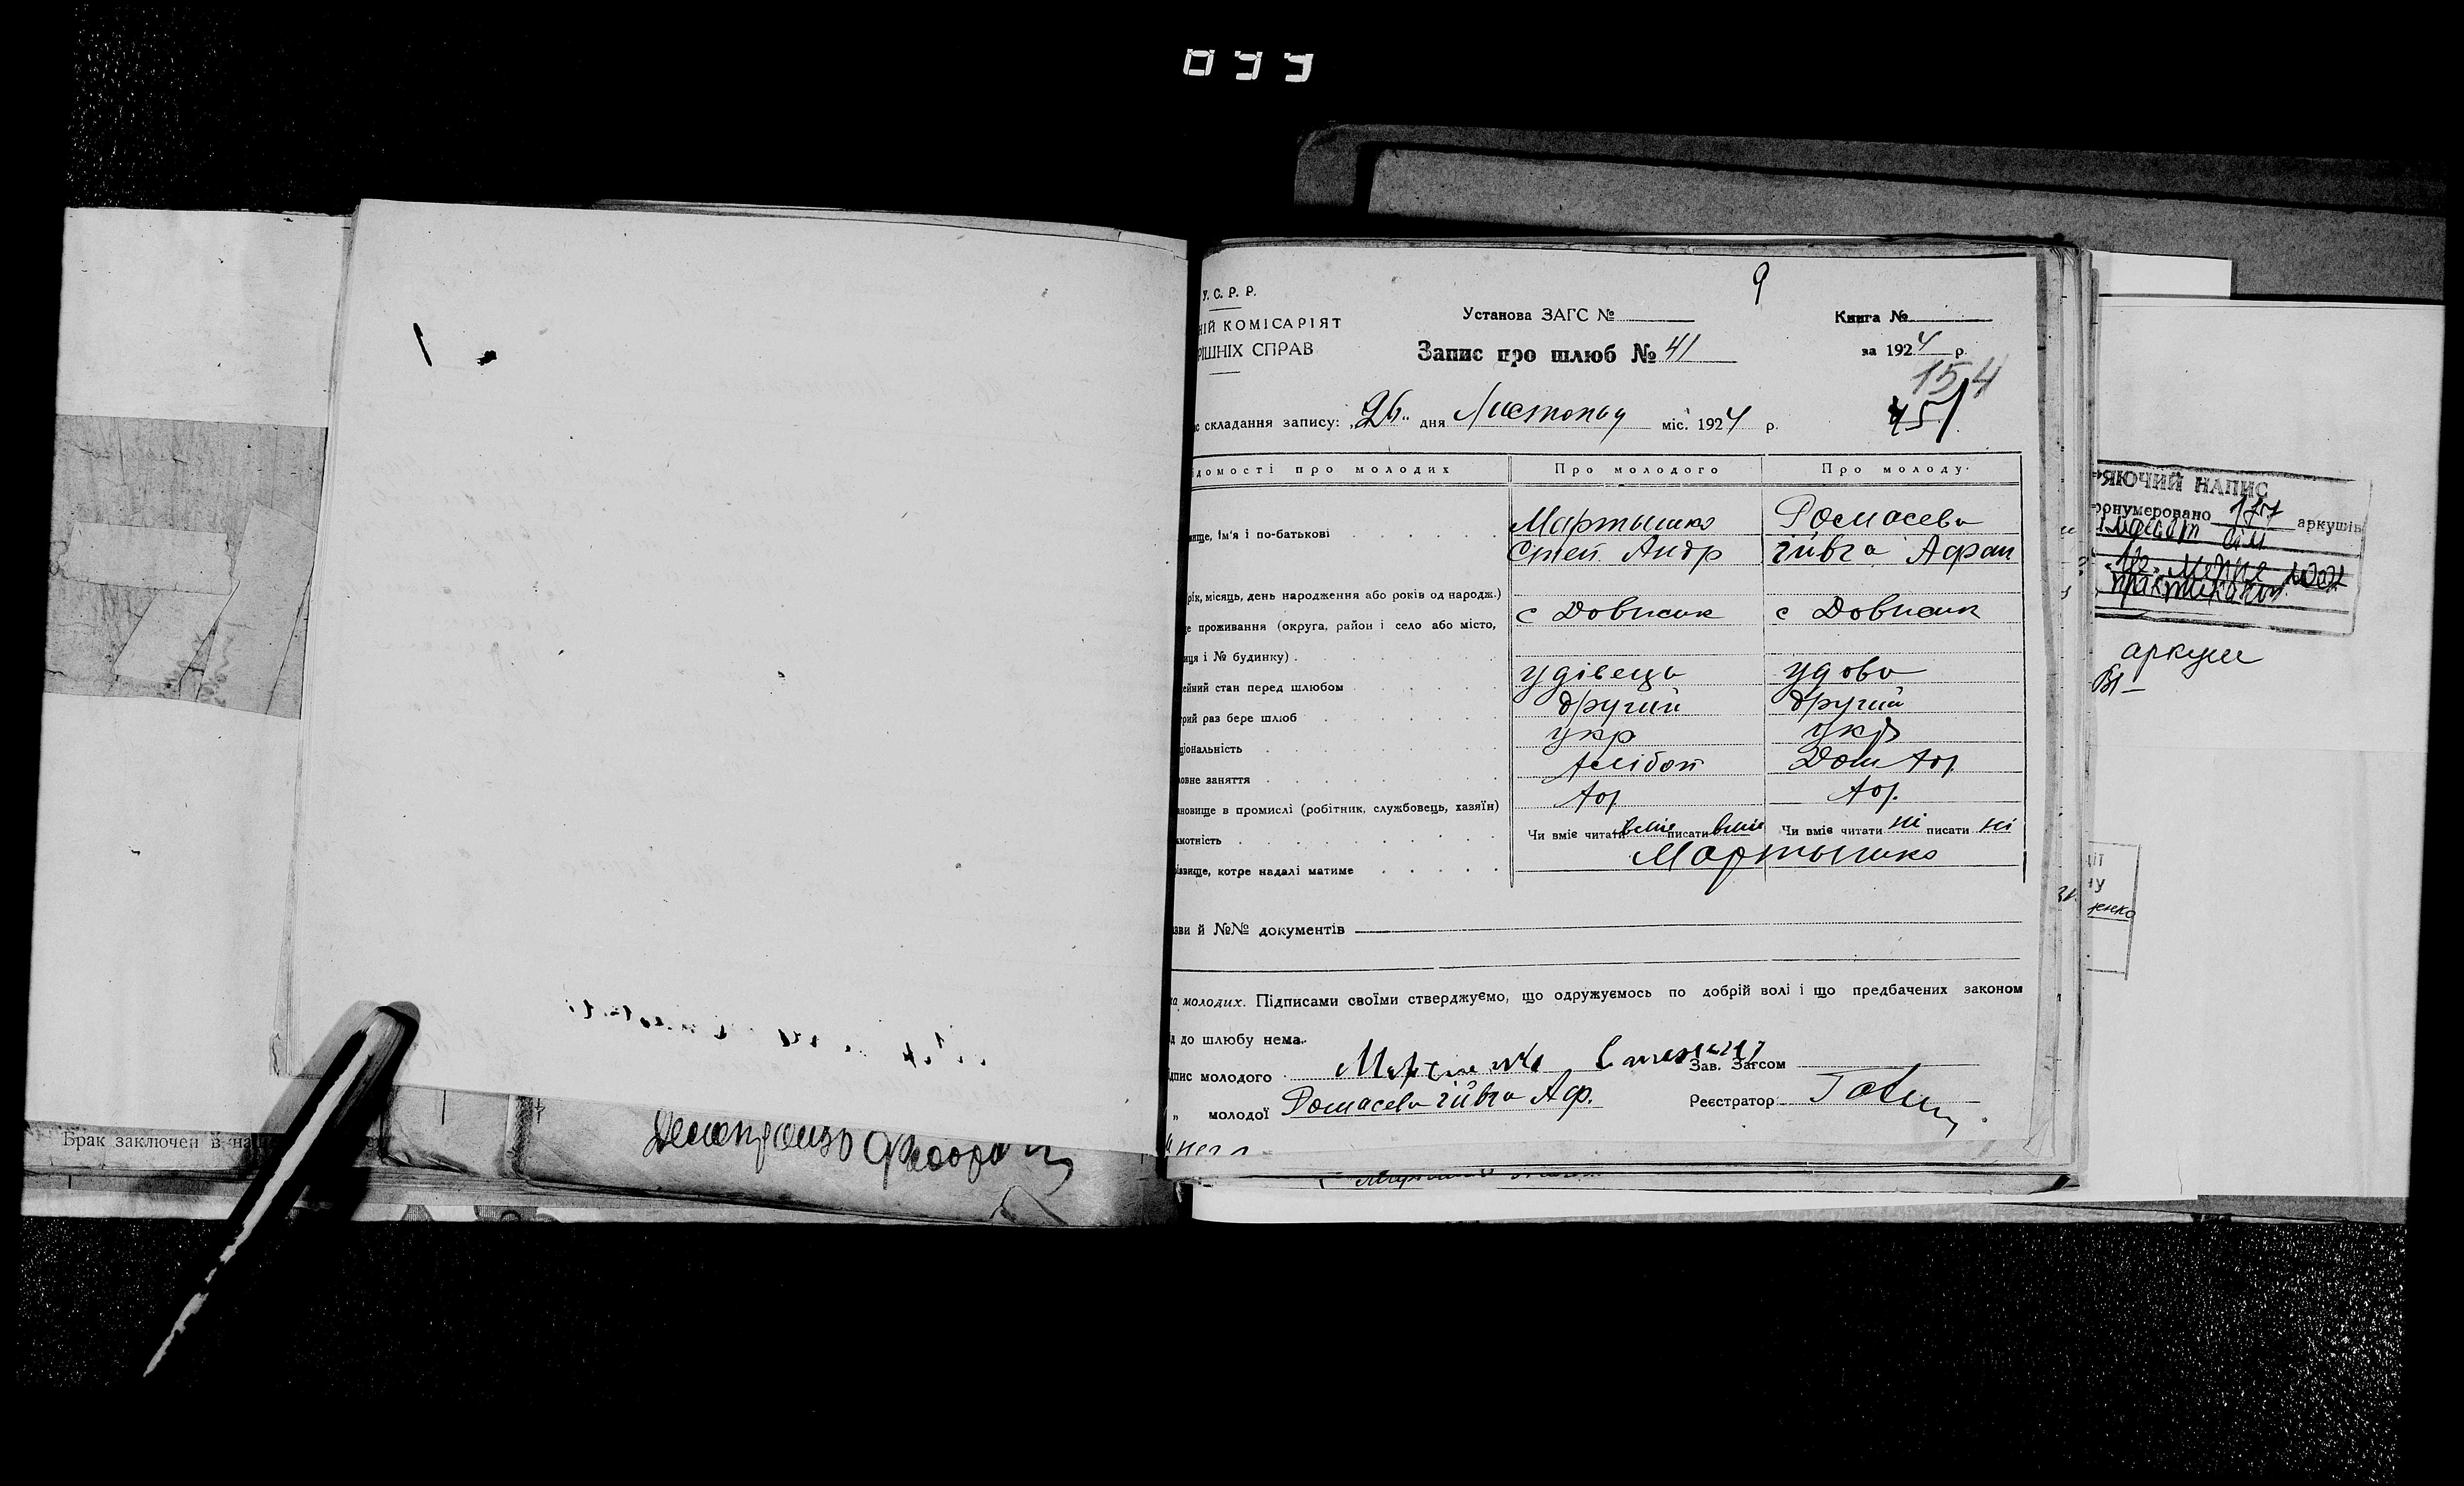 У. С. Р. Р.
9
Установа ЗАГС №
Книга №
НІЙ КОМІСАРІЯТ
РІШНІХ СПРАВ
Запис про шлюб № 41
за 1924 р.
154
151
складання запису: „26" дня Листопад міс. 1924 р.
ідомості про молодих
Про молодого
Про молоду
вище, ім'я і по-батькові
Мартышко
Ромасева
Степ. Андр
Гйвга Афан
рік, місяць, день народження або років од народж.)
е проживання (округа, район і село або місто,
с Довисик
с Довисик
иця і № будинку)
ейний стан перед шлюбом
удівець
удова
рий раз бере шлюб
другий
другий
ціональність
укр
укр
овне заняття
Хлібоп
Дом
ановище в промислі (робітник, службовець, хазяїн)
амотність
Чи вміє читати вміє писати вміє
Чи вміє читати ні писати ні
різвище, котре надалі матиме
Мартышко
зви й №№ документів
на молодих. Підписами своїми стверджуємо, що одружуємось по добрій волі і що предбачених законом
д до шлюбу нема.
дпис молодого Мартышко Степан
Зав. Загсом
„ молодої Ромасева Гйвга Аф.
Реєстратор
ЯЮЧИЙ НАПИС
ронумеровано 177 аркушів
сім
аркуш
енко
Брак заключен в на